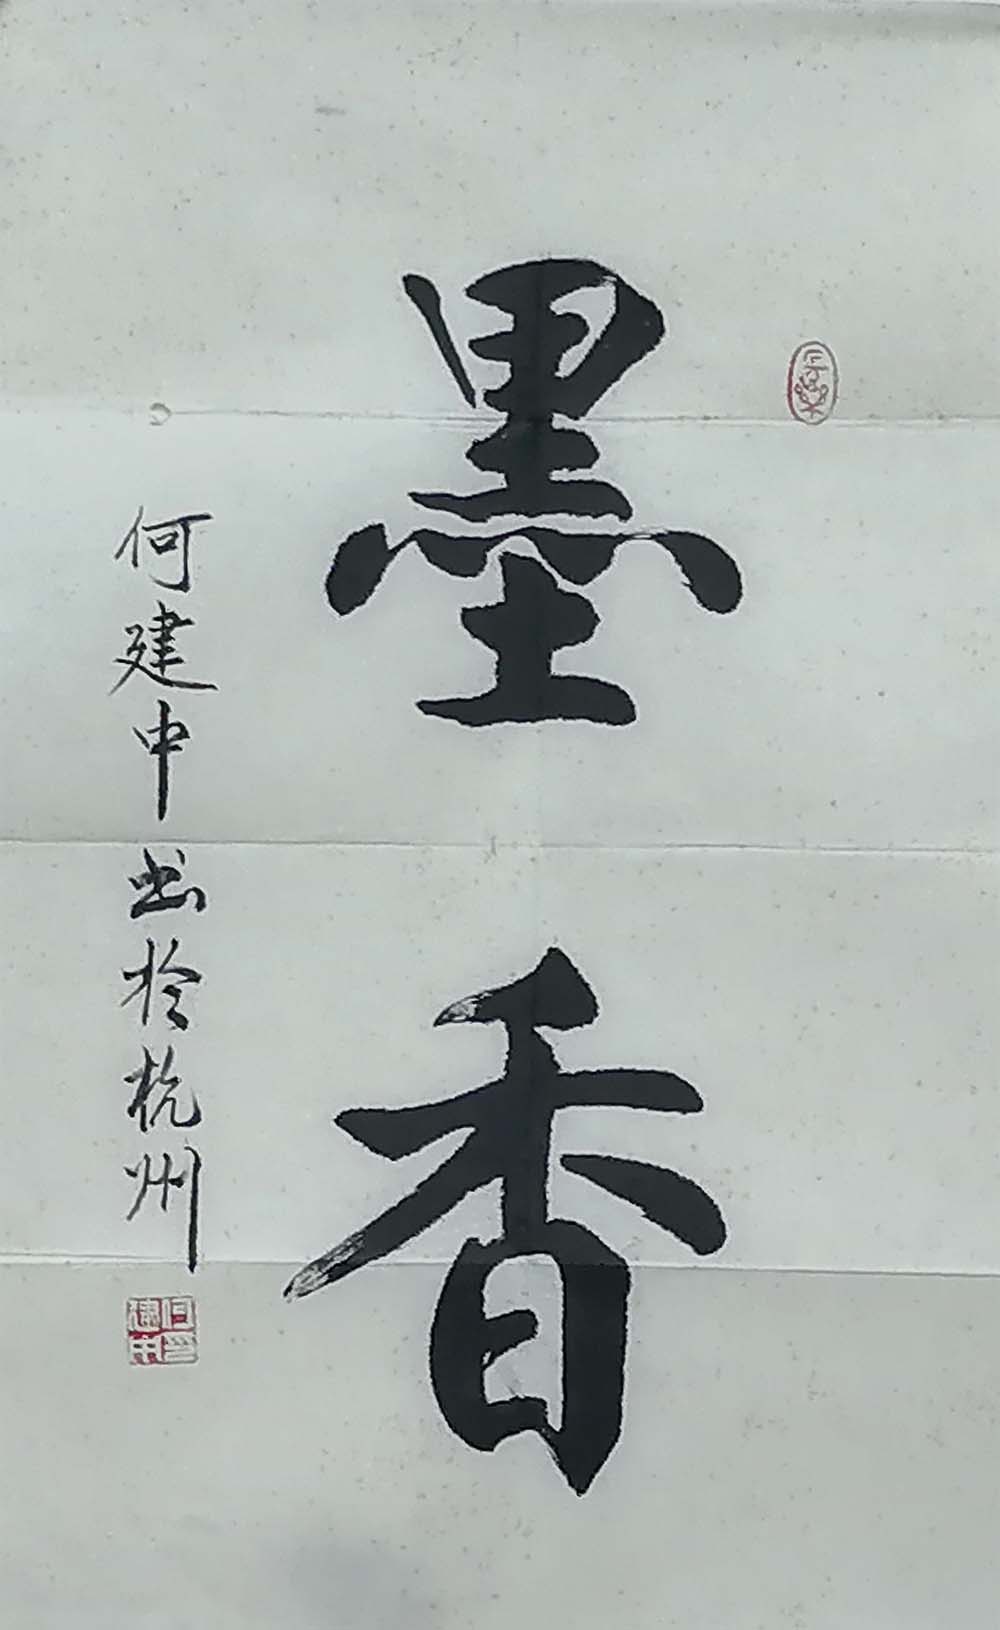 墨香
何建中书於杭州